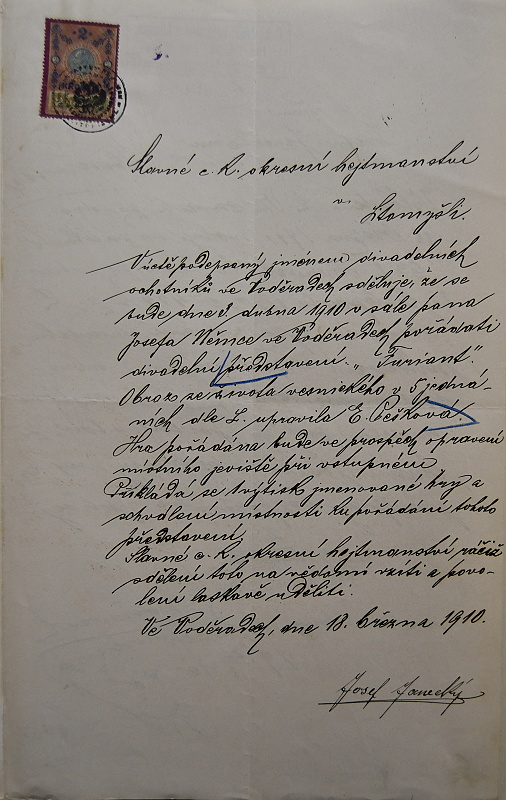 Slavné c. k. okresní hejtmanství
v
Litomyšli.
V úctě podepsaný jménem divadelních
ochotníků ve Voděradech sděluje, že se
bude dne 3. dubna 1910 v sále pana
Josefa Němce ve Voděradech pořádati
divadelní představení. „Furiant".
Obraz ze života vesnického v 5 jedná-
ních dle L. upravila E. Pešková.
Hra pořádána bude ve prospěch opravení
místního jeviště při vstupném
Přikládá se 1 výtisk jmenované hry a
schválení místnosti ku pořádání tohoto
představení.
Slavné c. k. okresní hejtmanství račiž
sdělení toto na vědomí vzíti a povo-
lení laskavě uděliti.
Ve Voděradech, dne 18. března 1910.
Josef Janecký